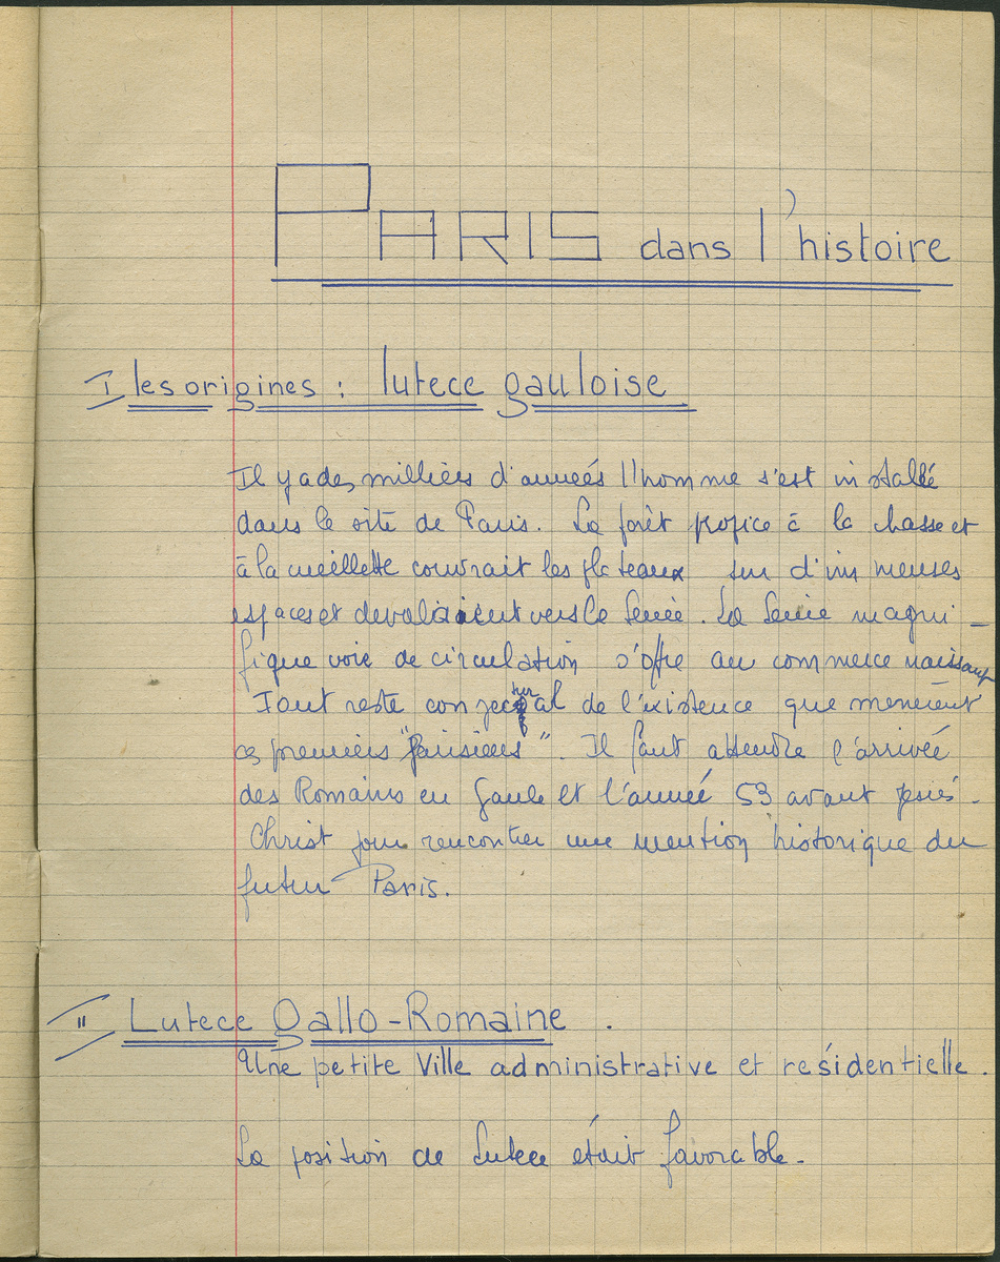 PARIS dans l'histoire
I les origines : lutece gauloise
Il y a des milliers d'années l'homme s'est installé
dans le site de Paris. La forêt propice à la chasse et
à la cueillette couvrait les plateaux sur d'immenses
espaces et devalaient vers la Seine. La Seine magni-
fique voie de circulation s'offre au commerce naissant
Tout reste conjectural de l'existence que menèrent
ces premiers "parisiens". Il faut attendre l'arrivée
des Romains en Gaule et l'année 53 avant Jésus-
Christ pour rencontrer une mention historique du
futur Paris.
II Lutece Gallo-Romaine.
Une petite Ville administrative et résidentielle.
La position de Lutece était favorable.